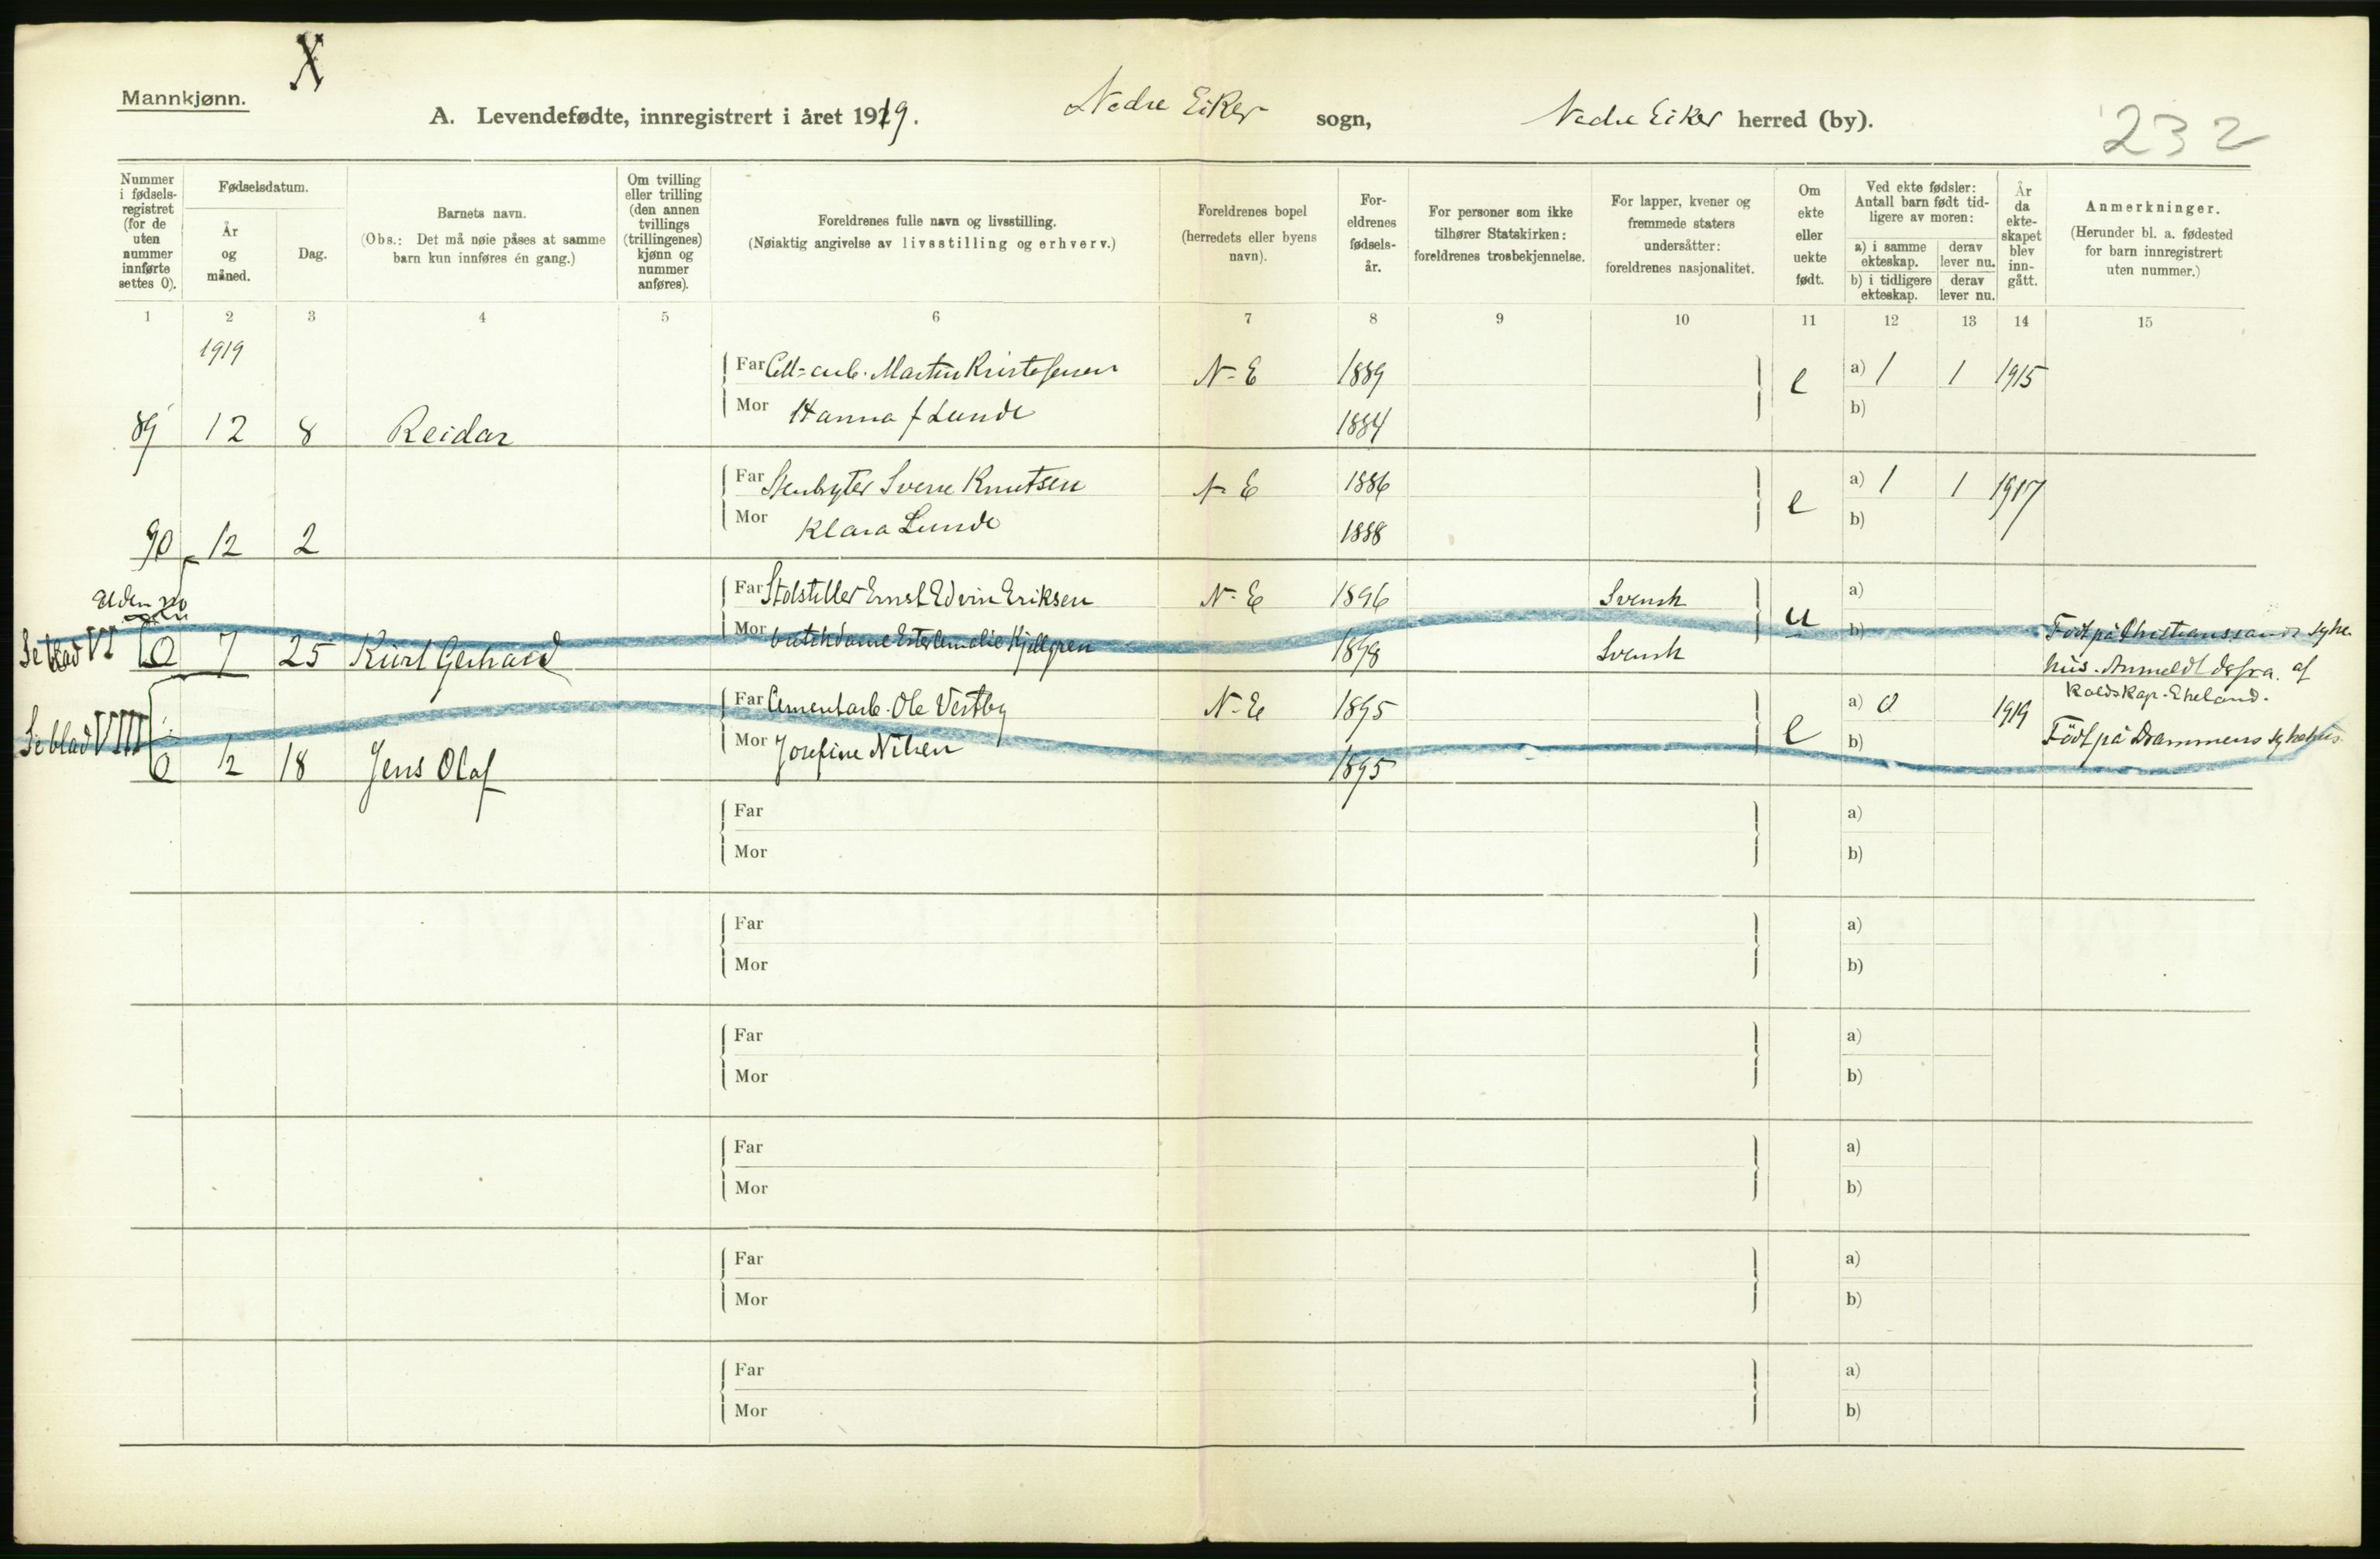 Mannkjønn.
X
A. Levendefødte, innregistrert i året 1919. Nedre Eiker sogn, Nedre Eiker herred (by).
232
Nummer i fødsels-registret (for de uten nummer innførte settes 0).
Fødselsdatum.
År og måned.
Dag.
Barnets navn.
(Obs.: Det må nøie påses at samme barn kun innføres én gang.)
Om tvilling eller trilling (den annen tvillings (trillingenes) kjønn og nummer anføres).
Foreldrenes fulle navn og livsstilling.
(Nøiaktig angivelse av livsstilling og erhverv.)
Foreldrenes bopel (herredets eller byens navn).
For-eldrenes fødsels-år.
For personer som ikke tilhører Statskirken: foreldrenes trosbekjennelse.
For lapper, kvener og fremmede staters undersåtter: foreldrenes nasjonalitet.
Om ekte eller uekte født.
Ved ekte fødsler: Antall barn født tid-ligere av moren:
a) i samme ekteskap.
derav lever nu.
b) i tidligere ekteskap.
derav lever nu.
År da ekte-skapet blev inn-gått.
Anmerkninger.
(Herunder bl. a. fødested for barn innregistrert uten nummer.)
1 2 3 4 5 6 7 8 9 10 11 12 13 14 15
1919
Far Cell=arb. Martin Kristofersen N-E 1889 e a) 1 1 1915
Mor Hanna f Lunde 1884 b)
89 12 8 Reidar
Far Stenbryter Sverre Knutsen N-E 1886 e a) 1 1 1917
Mor Klara Lunde 1888 b)
90 12 2
Uden no
Far Stolstiller Ernst Edvin Eriksen N-E 1896 Svensk u a)
Mor Ester Amalie Kjellgren 1898 Svensk b) Født på Christianssands syke-
Se blad VI 0 7 25 Kurt Gerhard hus. Anmeldt derfra. af
Far Cementarb. Ole Vestby N-E 1895 e a) 0 1919
Mor Josefine Nilsen 1895 b) Født på Drammens sykehus.
Se blad VIII 0 12 18 Jens Olaf
Far a)
Mor b)
Far a)
Mor b)
Far a)
Mor b)
Far a)
Mor b)
Far a)
Mor b)
Far a)
Mor b)